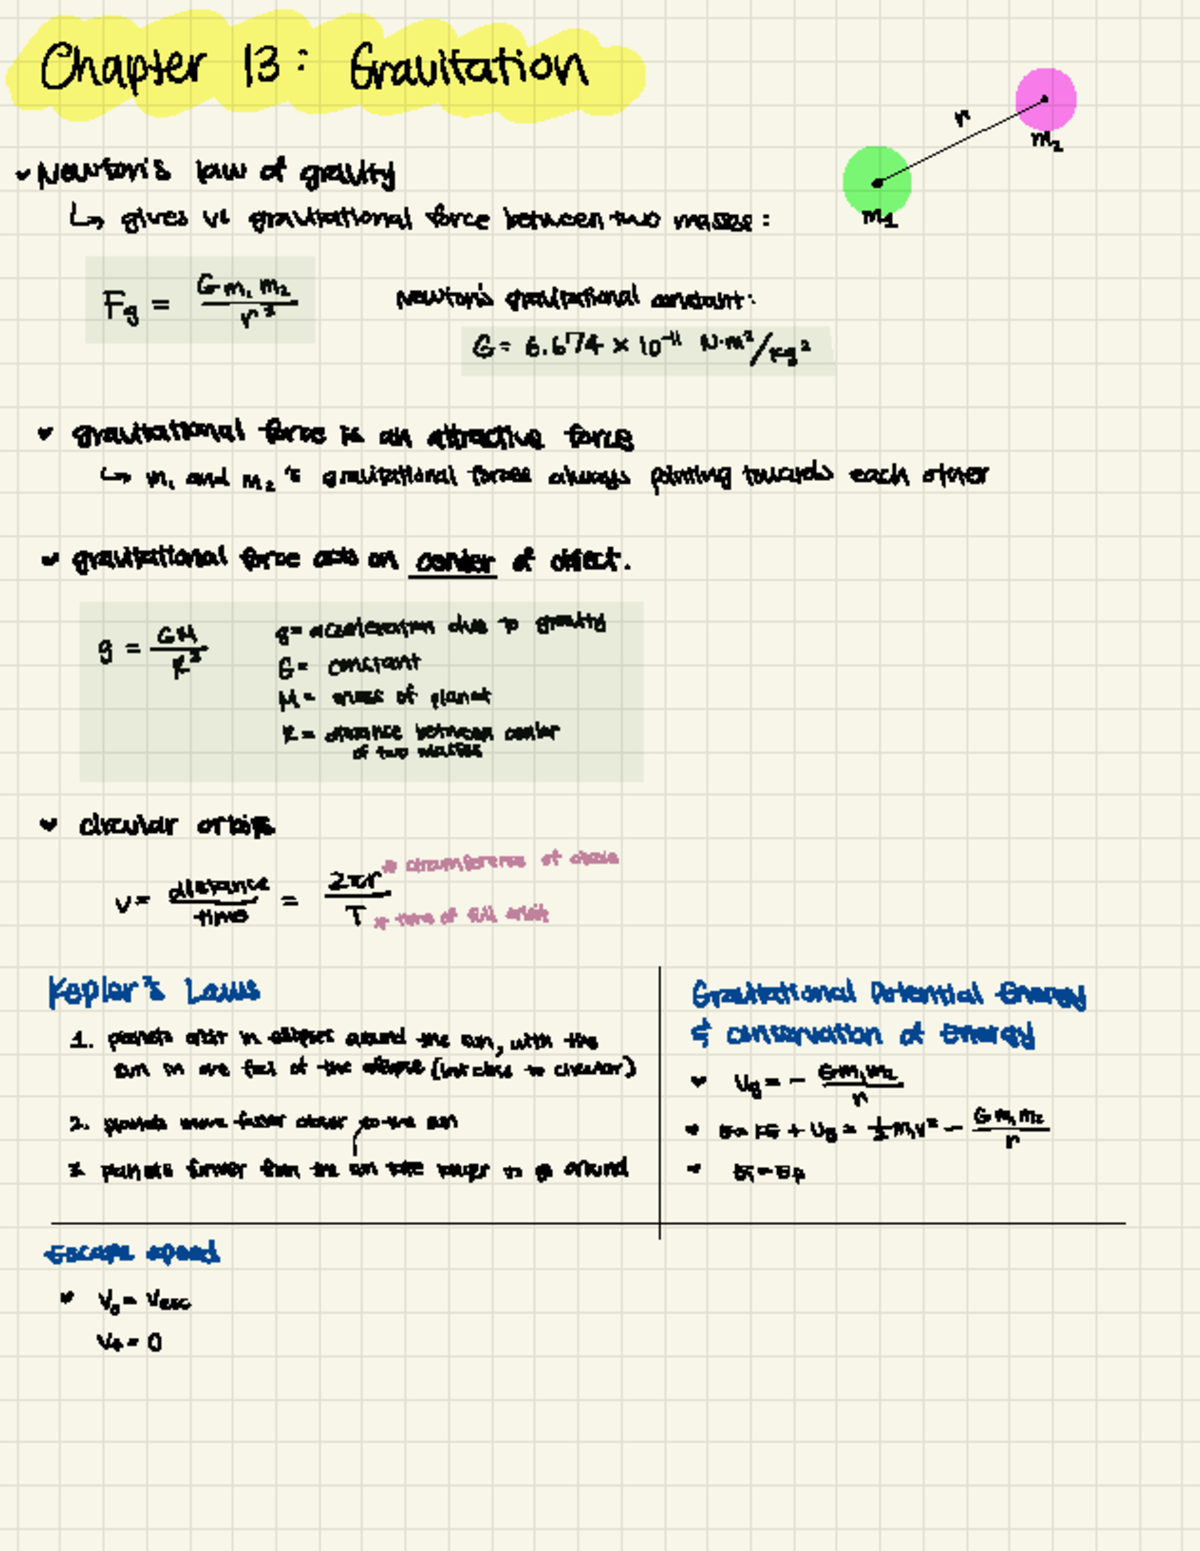 Chapter 13: Gravitation
r
m₂
m₁
Newton's law of gravity
↳ gives us gravitational force between two masses:
Fg = G m₁ m₂ / r²
Newton's gravitational constant:
G = 6.674 × 10⁻¹¹ N·m²/kg²
gravitational force is an attractive force
↳ m₁ and m₂'s gravitational forces always pointing towards each other
gravitational force acts on center of object.
g = GM / R²
g = acceleration due to gravity
G = constant
M = mass of planet
R = distance between center
of two masses
circular orbits
v = distance / time = 2πr / T
* circumference of circle
* time of full orbit
Kepler's Laws
1. planets orbit in ellipses around the sun, with the
sun in one foci of the ellipse ( close to circular)
2. planets move faster closer to the sun
3. planets further from the sun take longer to go around
Gravitational Potential Energy
& conservation of Energy
Ug = - Gm₁m₂ / r
E = KE + Ug = ½ m₁v² - G m₁m₂ / r
Escape speed
v₀ = vesc
vf = 0